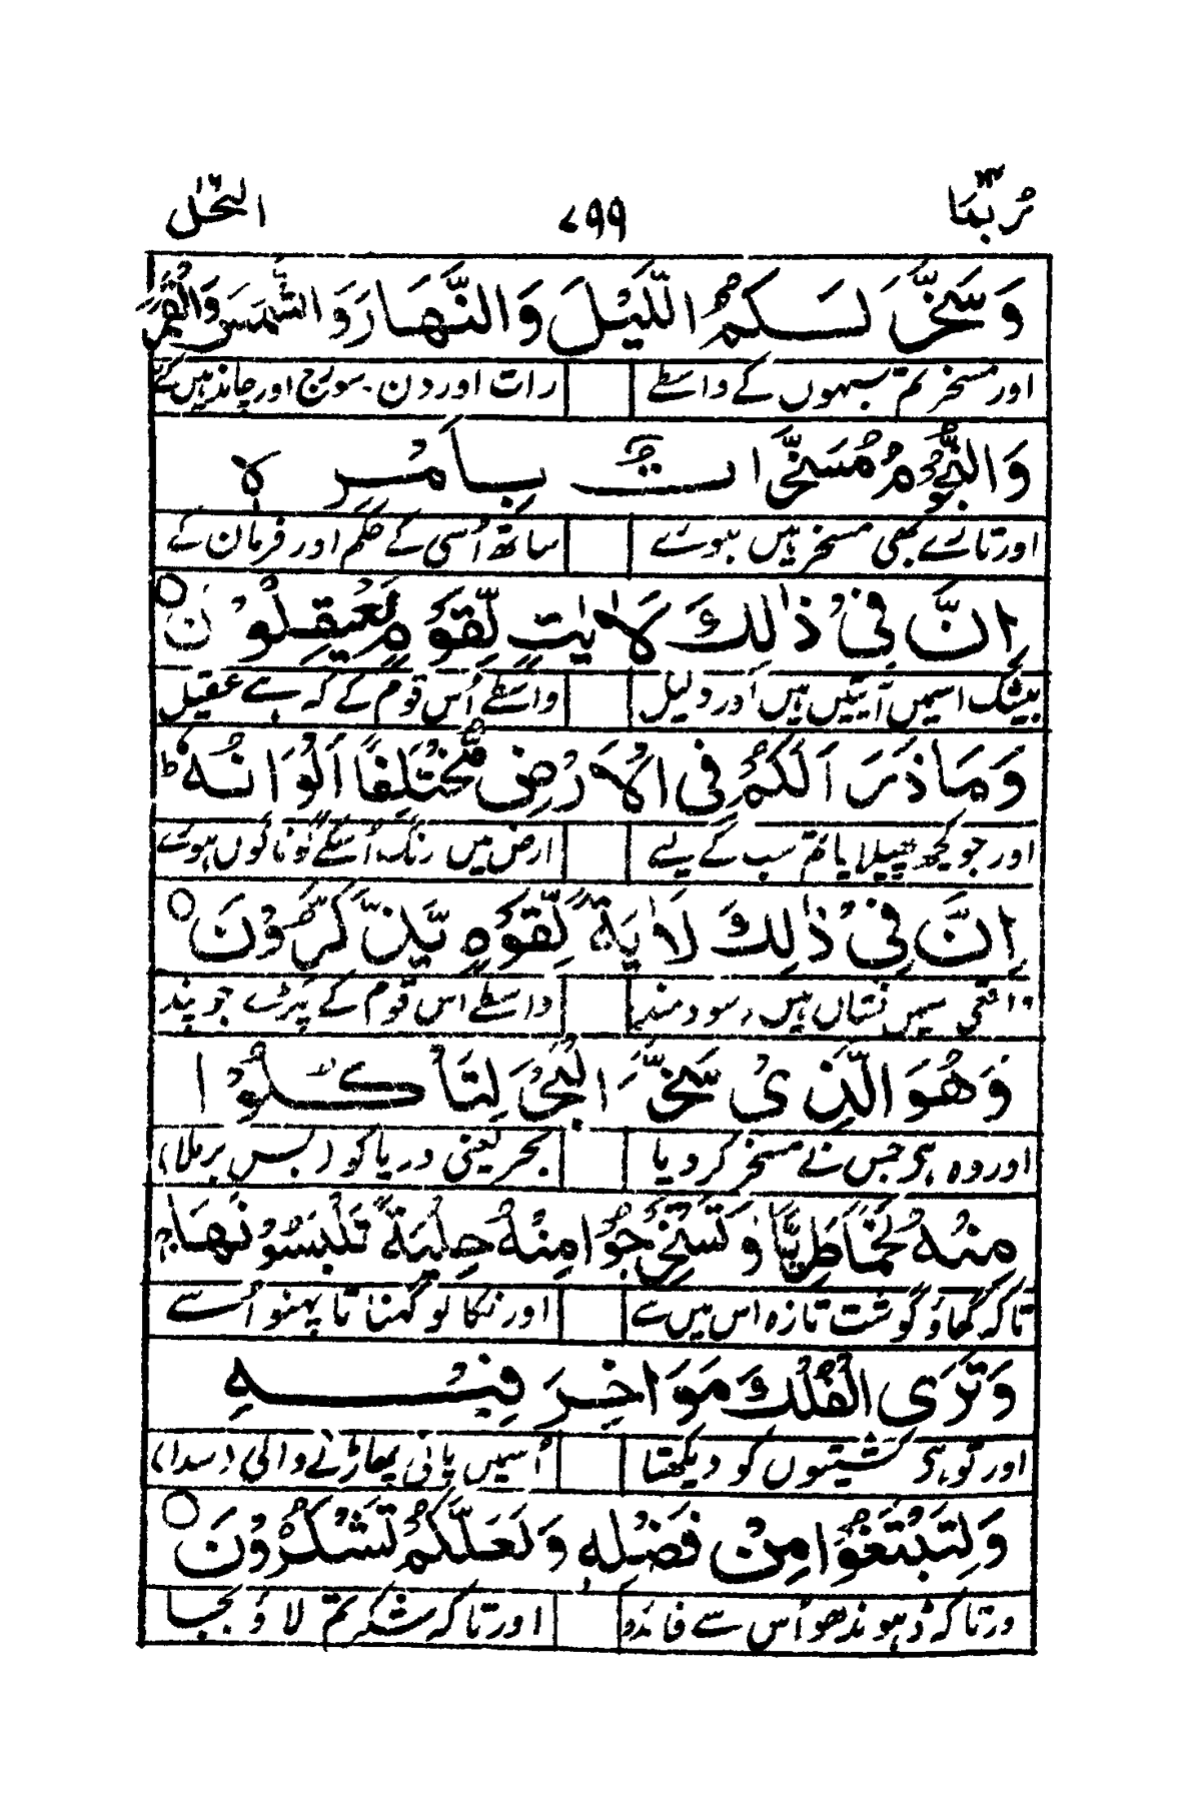 ربما ۱۴ ۷۹۹ النحل ۱۶
وَسَخَّرَ لَكُمُ الَّيْلَ وَالنَّهَارَ وَالشَّمْسَ وَالْقَمَرَ
اور مسخر تم سبھوں کے واسطے رات اور دن۔ سورج اور چاند ہیں کئے
وَالنُّجُوْمُ مُسَخَّرَاتٌ بِاَمْرِهٖ
اور تارے بھی مسخر ہیں ہوے ساتھ اُسی کے حکم اور فرمان کے
اِنَّ فِيْ ذٰلِكَ لَاٰيٰتٍ لِّقَوْمٍ يَّعْقِلُوْنَ ○
بیشک اسمیں آیتیں ہیں اور دلیل واسطے اُس قوم کے کہ ہے عقیل
وَمَا ذَرَاَ لَكُمْ فِي الْاَرْضِ مُخْتَلِفًا اَلْوَانُهٗ ط
اور جو کچھ پھیلایا تم سب کے لیے ارض میں رنگ اُسکے گوناگوں ہوے
اِنَّ فِيْ ذٰلِكَ لَاٰيَةً لِّقَوْمٍ يَّذَّكَّرُوْنَ ○
واقعی اسمیں نشاں ہیں سودمند واسطے اس قوم کے پکڑے جو پند
وَهُوَ الَّذِيْ سَخَّرَ الْبَحْرَ لِتَاْكُلُوْا
اور وہ ہی جس نے مسخر کر دیا بحر یعنی دریا کو (بس برملا)
مِنْهُ لَحْمًا طَرِيًّا وَّتَسْتَخْرِجُوْا مِنْهُ حِلْيَةً تَلْبَسُوْنَهَا ج
تاکہ کھاؤ گوشت تازہ اس میں سے اور نکالو گہنا تا پہنو اُسے
وَتَرَى الْفُلْكَ مَوَاخِرَ فِيْهِ
اور تو ہی کشتیوں کو دیکھتا اُسمیں پانی پھاڑنے والی (سدا)
وَلِتَبْتَغُوْا مِنْ فَضْلِهٖ وَلَعَلَّكُمْ تَشْكُرُوْنَ ○
ورتاکہ ڈہونڈھو اُس سے فائدو اور تاکہ شکر تم لاؤ بجا